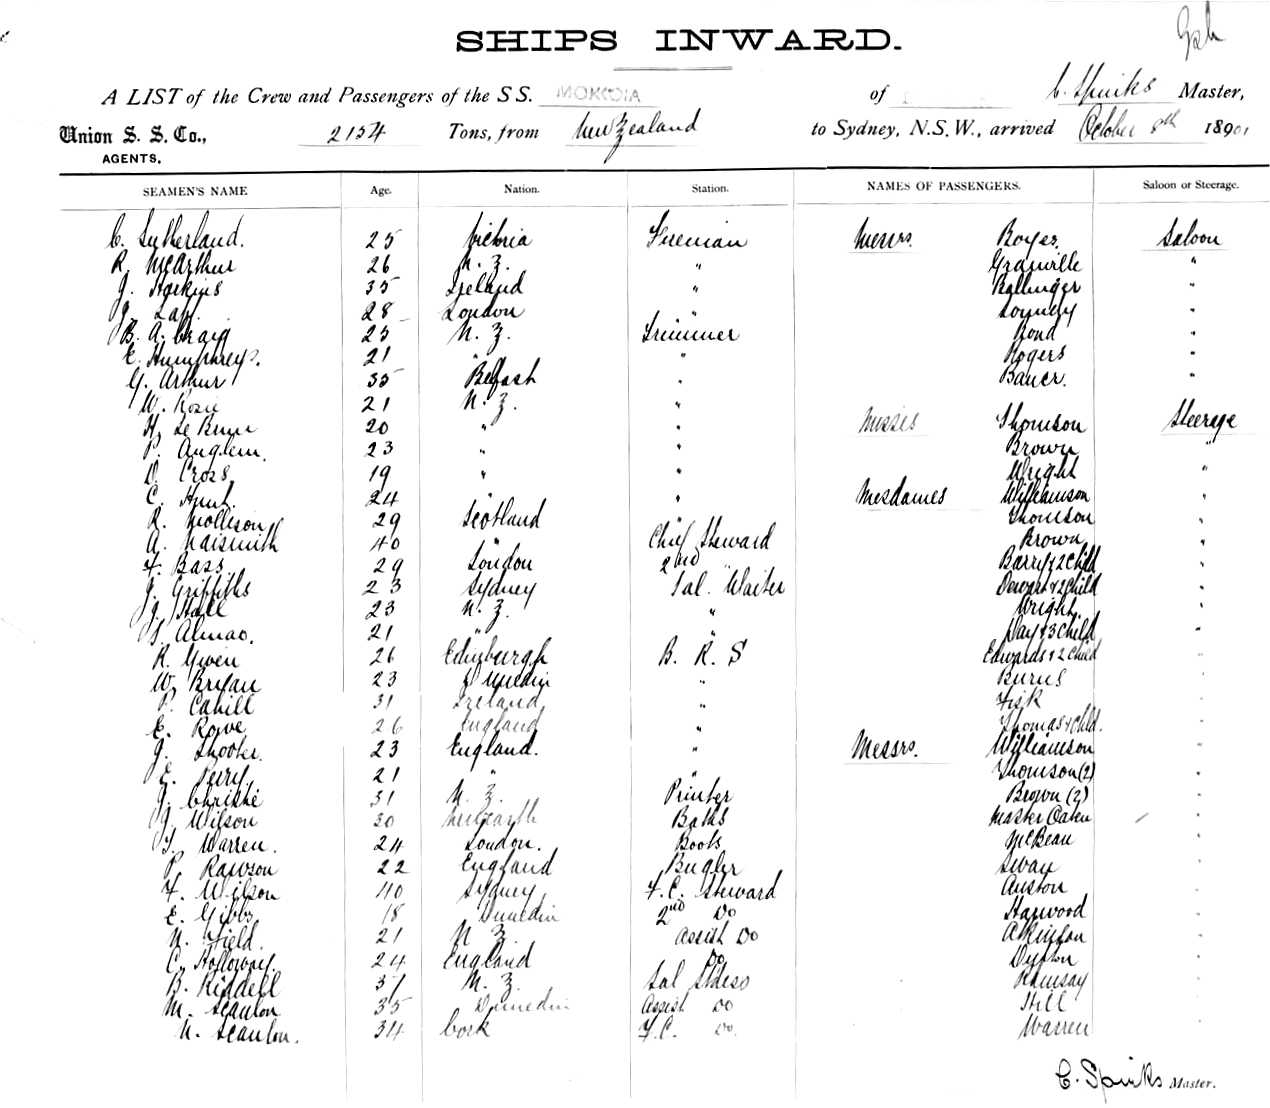 SHIPS INWARD.
A LIST of the Crew and Passengers of the S S. MOKOIA of C. Spinks Master,
Union S. S. Co., 2154 Tons, from New Zealand to Sydney, N.S.W., arrived October 8th 1890
AGENTS.
SEAMEN'S NAME Age. Nation. Station. NAMES OF PASSENGERS. Saloon or Steerage.
C. Sutherland. 25 Victoria Fireman Messrs. Boyes. Saloon
R. McArthur 26 N. Z. " Granville "
J. Hoskins 35 Ireland " Ballinger "
J. 28 London " "
B. A. Craig 25 N. Z. Trimmer Bond "
E. Humphreys. 21 " " Rogers "
G. Arthur 35 Belfast " Bauer. "
W. Rosie 21 N. Z. "
H. Le Brun 20 " " Misses Thomson Steerage
P. Anglem. 23 " " Brown "
D. Cross 19 " " Wright "
C. Hunt 24 " " Mesdames Williamson "
R. Mollison 29 Scotland " Thomson "
A. Naismith 40 " Chief Steward Brown "
F. Bass 29 London 2nd " Barry & 2 Child "
J. Griffiths 23 Sydney Sal. Waiter Dewars & 2 Child "
J. Hall 23 N. Z. " Wright "
S. Almao. 21 " " Day & 3 Child "
R. Given 26 Edinburgh B. R. S Edwards & 2 Child "
W. Bryan 23 Dunedin " Burns "
P. Cahill 31 Ireland " Fisk "
E. Rowe 26 England " Thomas & Child. "
J. Shooter. 23 England. " Messrs. Williamson "
E. Perry. 21 " " Thomson (2) "
J. Christie 31 N. Z. Printer Brown (2) "
J. Wilson 30 Baths Master Oaten "
T. Warren. 24 London. Boots McBean "
P. Rawson 22 England Bugler Swan "
F. Wilson 40 Sydney F. C. Steward Auston "
E. Gibbs 18 Dunedin 2nd Do Harwood "
N. Field. 21 N Z Assist Do "
C. Holloway. 24 England Do "
B. Riddell 37 N. Z. Sal Stdess Ramsay "
M. Scanlon 35 Dunedin Assist Do Hill "
N. Scanlon. 34 Cork F. C. Do. Warren "
C. Spinks Master.